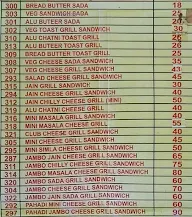 300 BREAD BUTTER SADA 18
303 VEG SANDWICH SADA 25
301 ALU BUTEER SADA
302 VEG TOAST GRILL SANDWICH 30
310 ALU CHATNI TOAST GRILL 26
313 ALU BUTEER TOAST GRILL 26
309 BREAD BUTTER TOAST GRILL 25
VEG CHEESE SADA SANDWICH 35
VEG CHEESE GRILL SANDWICH 43
293 SALAD CHEESE GRILL SANDWICH 45
315 JAIN GRILL SANDWICH 30
294 JAIN CHEESE GRILL SANDWICH
312 JAIN CHILLY CHEESE GRILL (MINI) 50
319 ALU CHATNI CHEESE GRILL
316 MINI MASALA GRILL SANDWICH 40
MINI MASALA CHEESE GRILL SANDWICH 55
321 CLUB CHEESE GRILL SANDWICH 40
MINI CHEESE GRILL SANDWICH
295 MINI SIMLA CHEESE GRILL SANDWICH 50
287 JAMBO JAIN CHEESE GRILL SANDWICH 65
311 JAMBO CHILLY CHEESE GRILL SANDWICH 75
314 JAMBO MASALA CHEESE GRILL SANDWICH 80
320 JAMBO SADA GRILL SANDWICH
304 JAMBO CHEESE GRILL SANDWICH 70
322 JAMBO JAIN SADA GRILL SANDWICH 60
292 PAHADI JAMBO GRILL SANDWICH
297 PAHADI JAMBO CHEESE GRILL SANDWICH